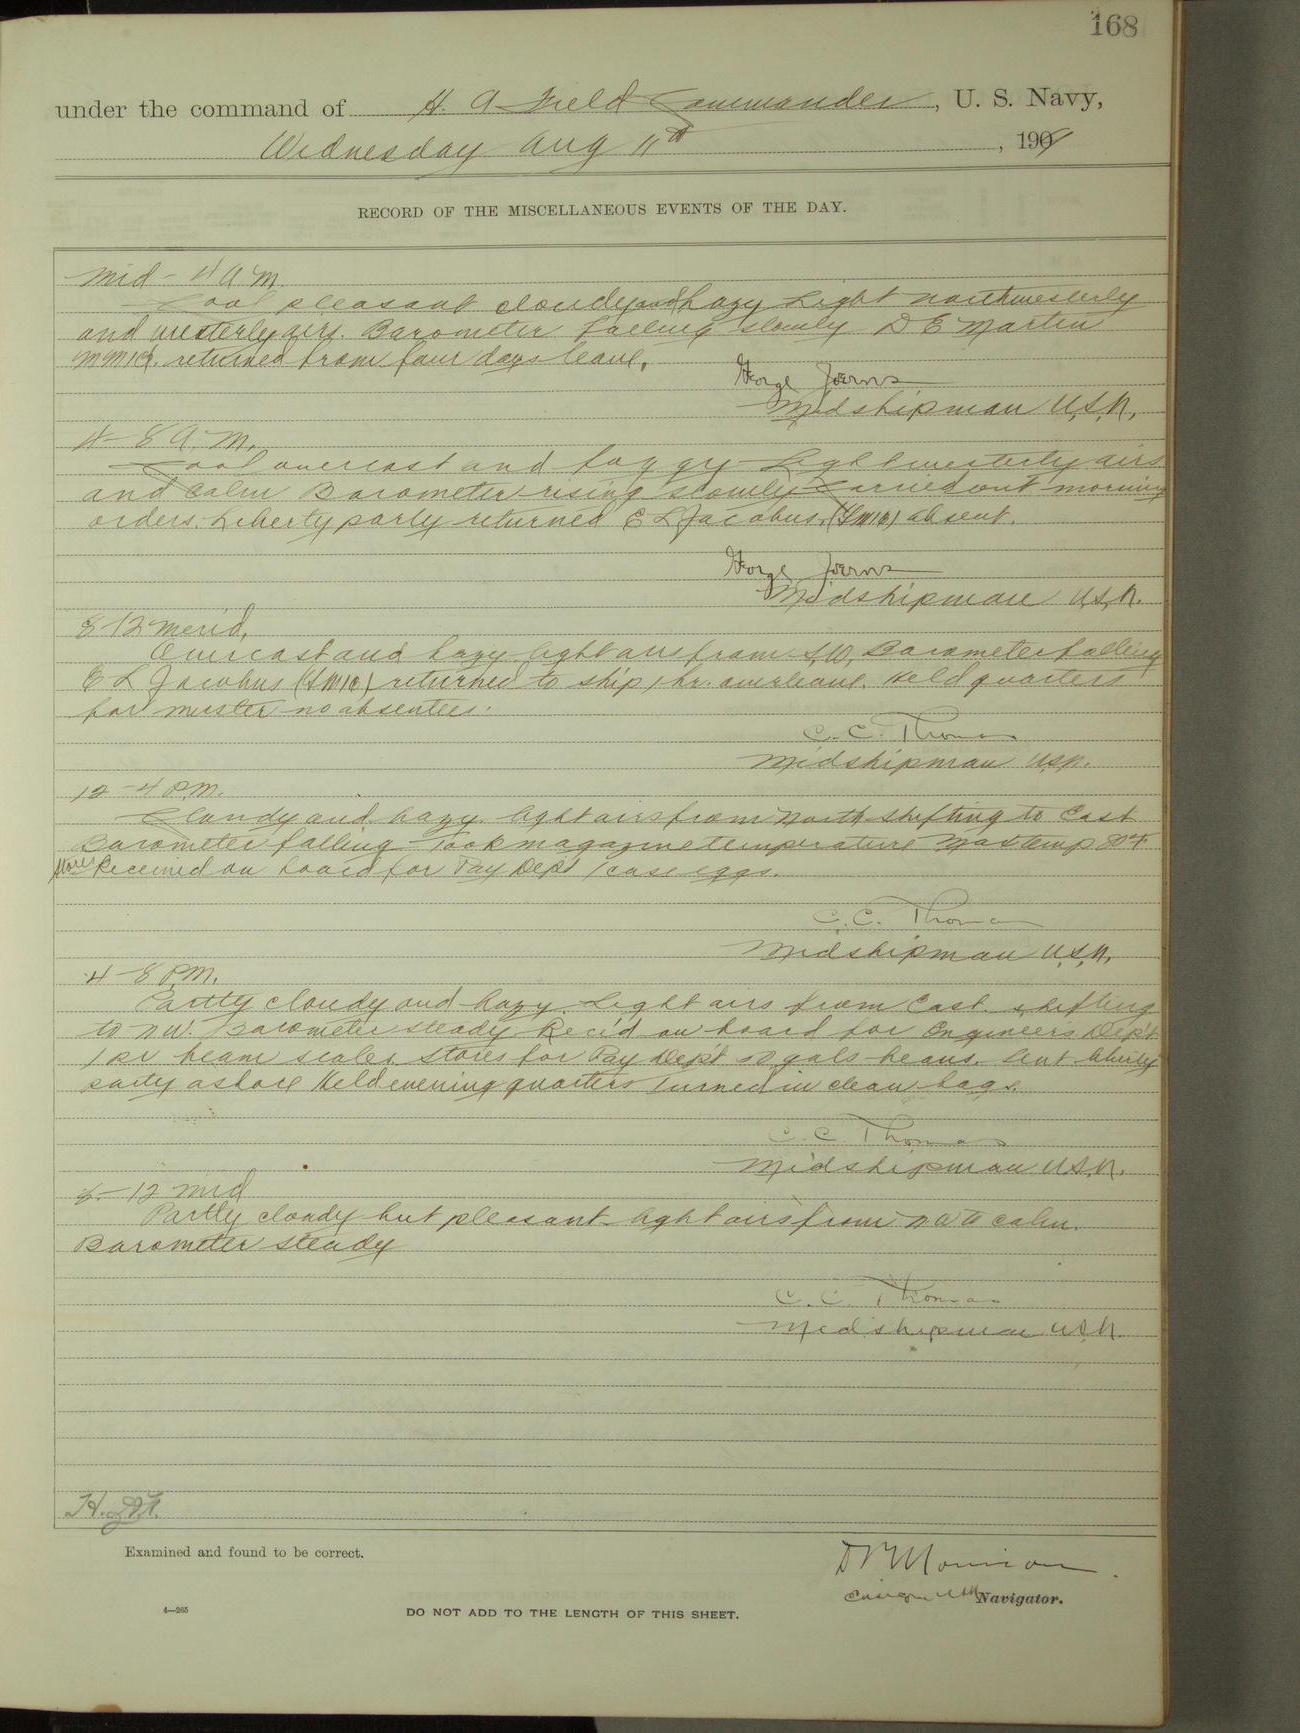 168
under the command of H. A Field Commander, U. S. Navy,
Wednesday Aug 11th, 1909
RECORD OF THE MISCELLANEOUS EVENTS OF THE DAY.
Mid - 4 A.M.
Cool pleasant cloudy and hazy Light northwesterly
and westerly airs. Barometer falling slowly D E Martin
returned from four days leave.
George Joerns
Midshipman U.S.N.
4-8 A.M.
Cool overcast and foggy Light westerly airs
and calm Barometer rising slowly Carried out morning
orders. Liberty party returned E L Jacobus, absent.
George Joerns
Midshipman U.S.N.
8-12 Merid.
Overcast and hazy light airs from S.W. Barometer falling
E L Jacobus returned to ship 1 hr. overleave. Held quarters
for muster no absentees.
C. C. Thomas
Midshipman U.S.N.
12-4 P.M.
Cloudy and hazy light airs from North shifting to East
Barometer falling Took magazine temperature Max temp 80°F
Stores Received on board for Pay Dept 1 case eggs.
C. C. Thomas
Midshipman U.S.N.
4-8 P.M.
Partly cloudy and hazy. Light airs from East shifting
to NW. Barometer steady Rec'd on board for Engineers Dep't
1 pr beam scales. Stores for Pay Dep't 50 gals beans. Sent liberty
party ashore Held evening quarters Turned in clean bags.
C. C. Thomas
Midshipman U.S.N.
8-12 mid
Partly cloudy but pleasant light airs from NW to calm.
Barometer steady
C. C. Thomas
Midshipman U.S.N.
Examined and found to be correct.
Ensign USN Navigator.
4—265
DO NOT ADD TO THE LENGTH OF THIS SHEET.